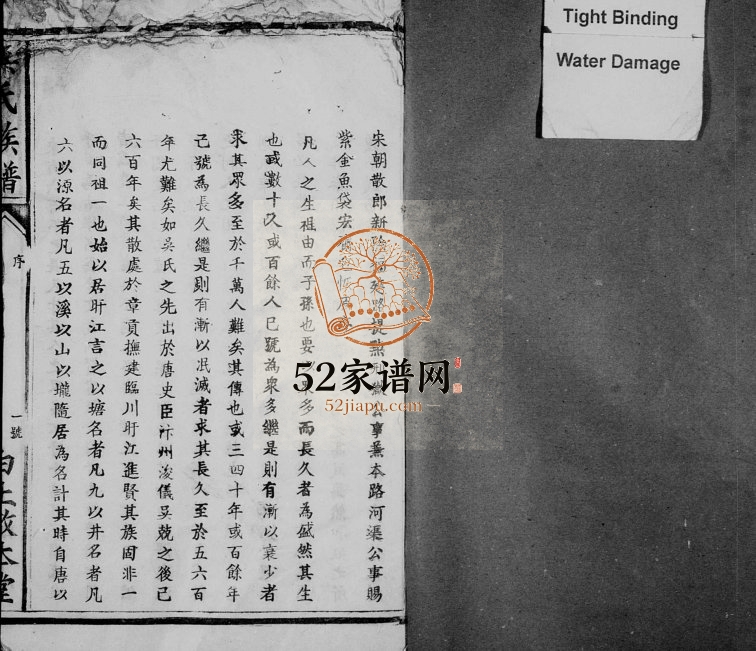 Tight Binding
Water Damage
宋朝散郎新 提點刑獄公事兼本路河渠公事賜
紫金魚袋宏
凡人之生祖由而子孫也要 多而長久者為盛然其生
也或數十人或百餘人已號為眾多繼是則有漸以衰少者
求其眾多至於千萬人難矣其傳也或三四十年或百餘年
已號為長久繼是則有漸以泯滅者求其長久至於五六百
年尤難矣如吳氏之先出於唐史臣汴州浚儀吳兢之後已
六百年矣其散處於章貢撫建臨川盱江進賢其族固非一
而同祖一也始以居盱江言之以塘名者凡九以井名者凡
六以源名者凡五以溪以山以壠隨居為名計其時自唐以
氏族譜
序
一號
52家谱网
52jiapu.com